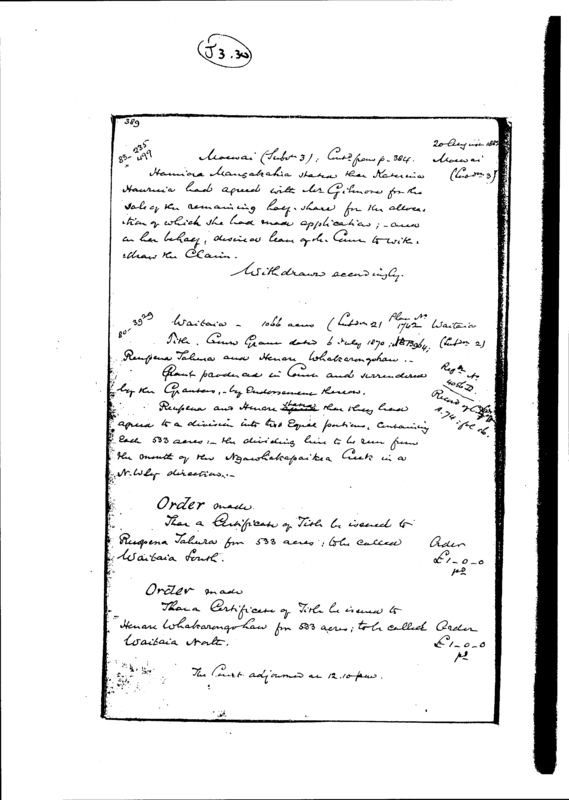 J 3.30
389
20 August 188
83-235
" 499
Moewai (Subdn 3); Contd from p. 384. Moewai
(Subdn 3)
Hamiora Mangakahia stated that
had agreed with Mr Gilmore for the
sale of the remaining half-share for the
of which she had made application; - and
on her behalf, desired leave of the Court to with-
-draw the Claim.
Withdrawn accordingly.
80-3929
Waitaia - 1066 acres (Subdn 2) Plan No 1742 Waitaia
Title. Crown Grant dated 6 July 1870: (Subdn 2)
Reupena Tahura and Henare Whakarongohau -
Grant produced in Court and surrendered
by the Grantees, - by Endorsement thereon.
Reupena and Henare stated that they had
agreed to a division into two Equal portions, containing
Each 533 acres; - the dividing line to be run from
the mouth of the Ngawhakapaikea Creek in a
N.Wly direction. -
Order made
That a Certificate of Title be issued to
Reupena Tahura for 533 acres; to be called Order
Waitaia South. £1-0-0
pd
Order made
That a Certificate of Title be issued to
Henare Whakarongohau for 533 acres; to be called Order
Waitaia North. £1-0-0
pd
The Court adjourned at 12.10 p.m.